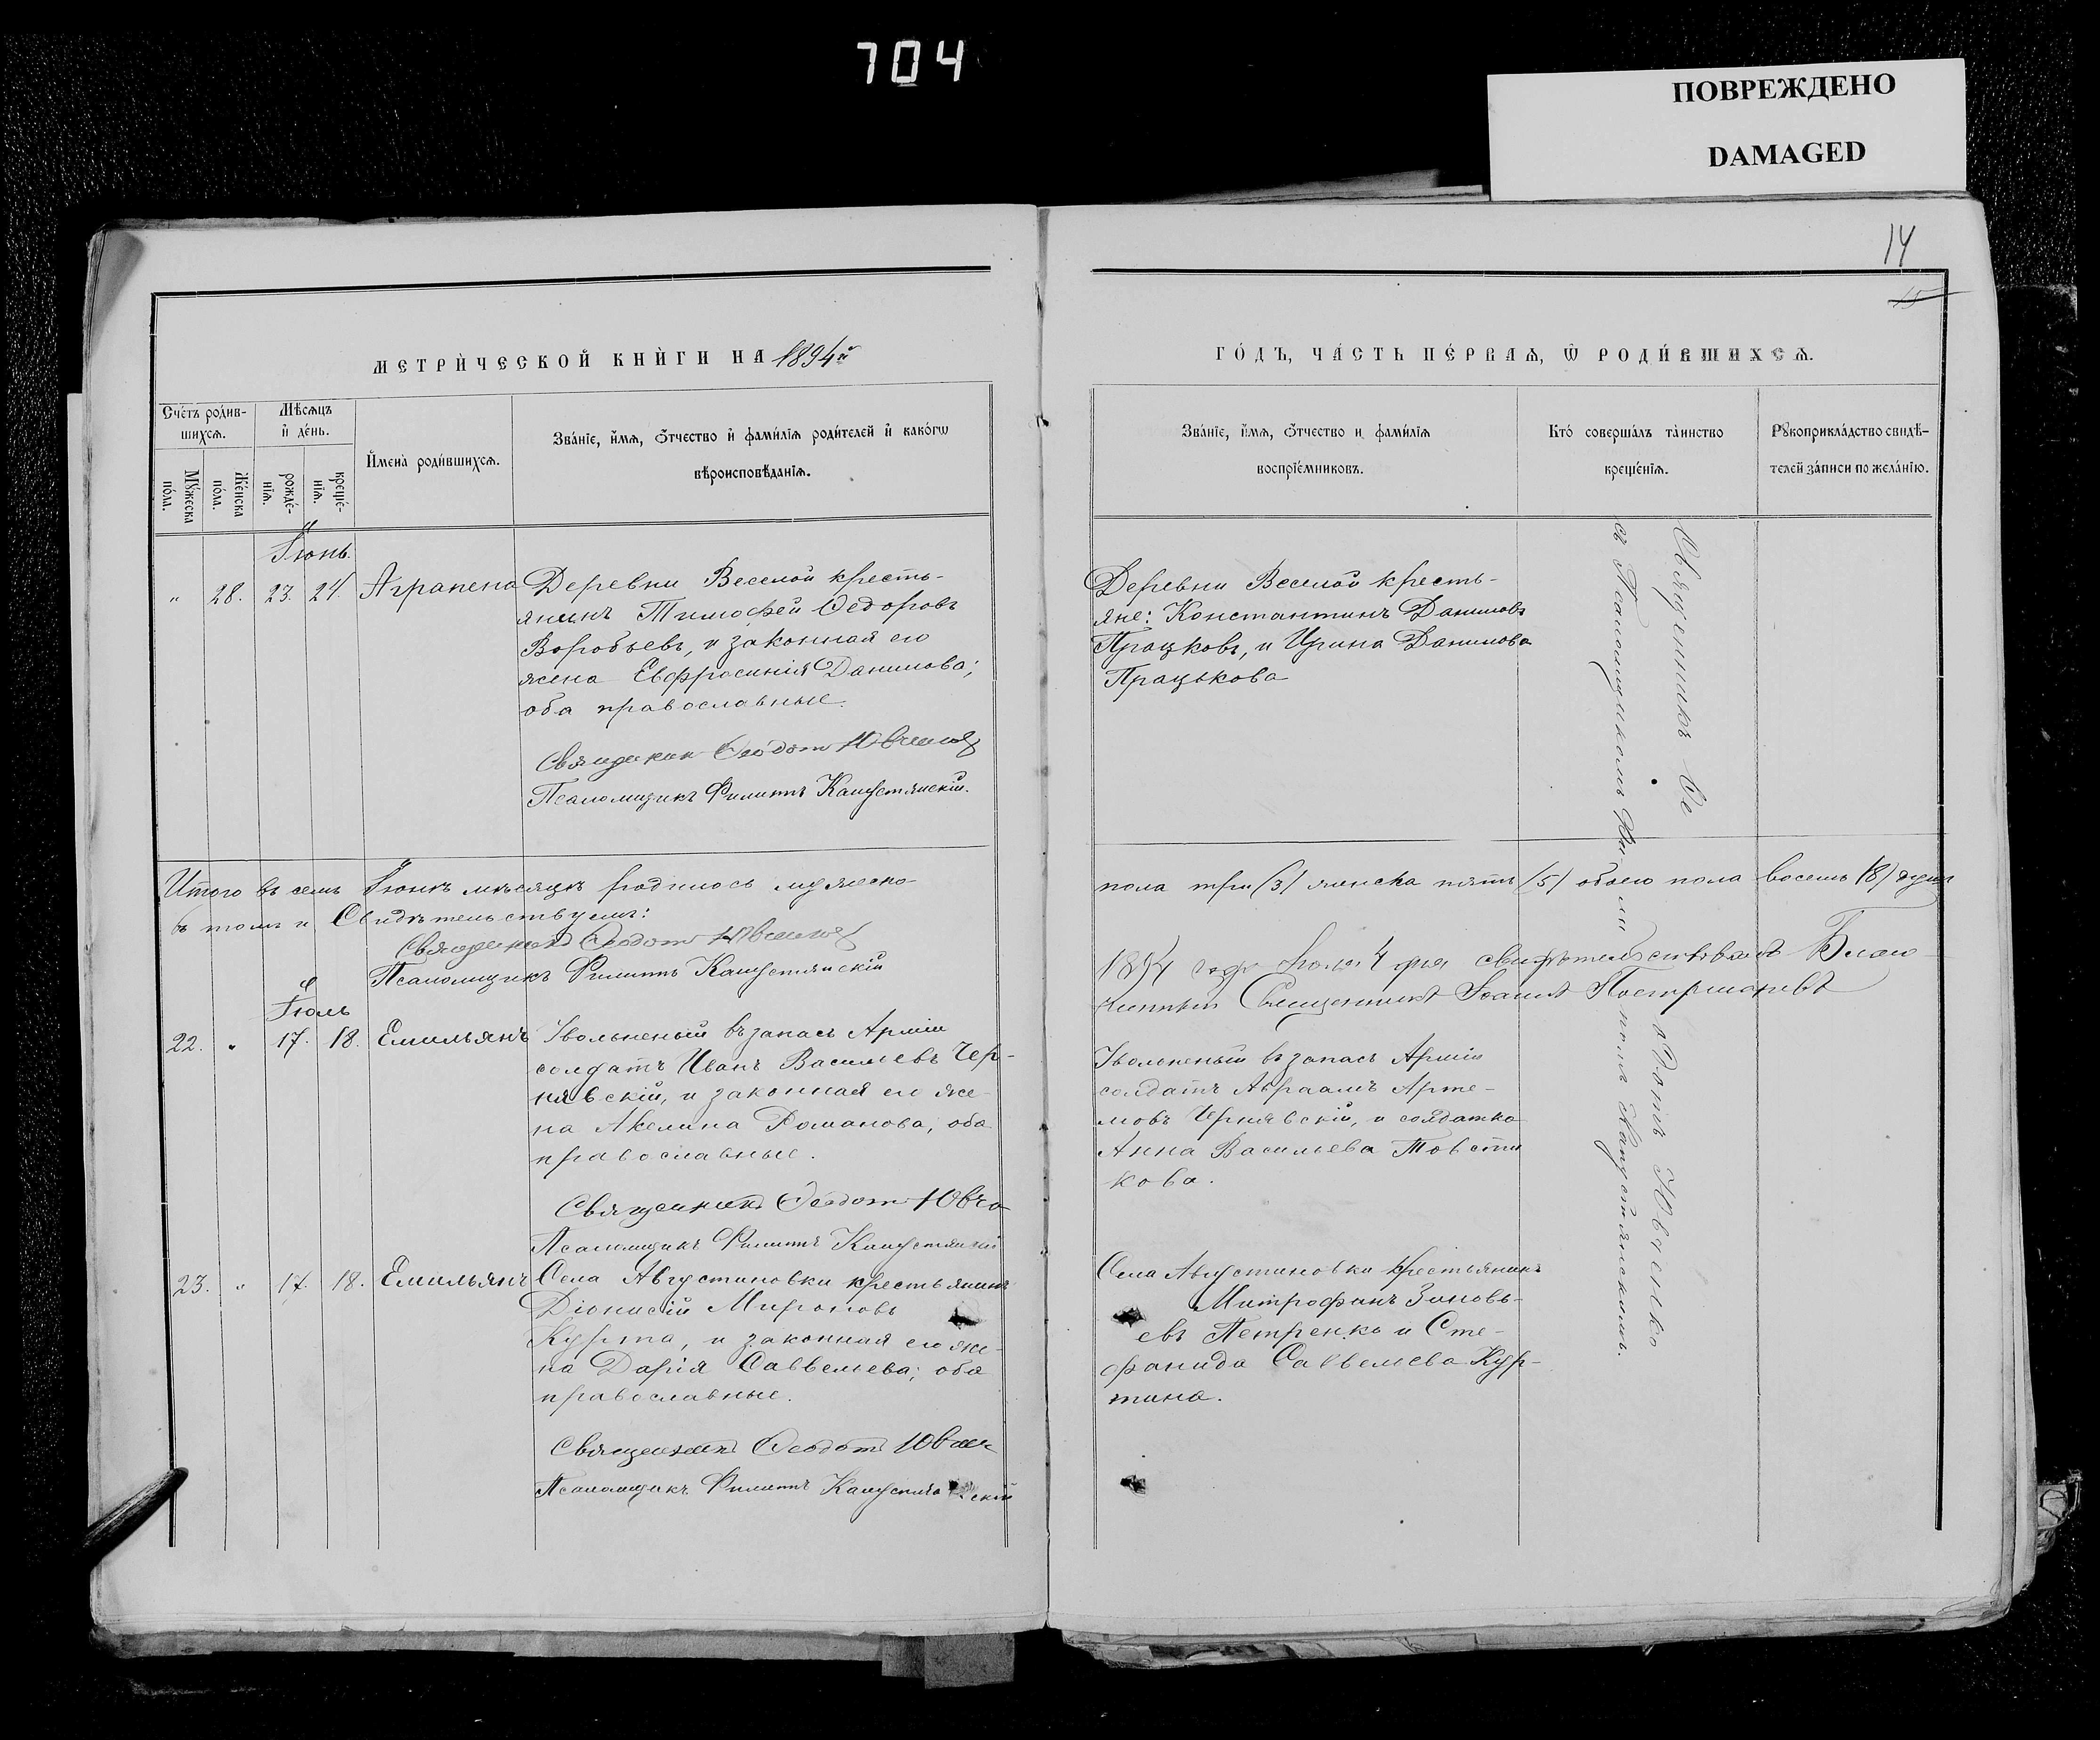 704
ПОВРЕЖДЕНО
DAMAGED
14
15
МЕТРИ́ЧЕСКОЙ КНИ́ГИ НА 1894й
ГО́ДЪ, ЧА́СТЬ ПЕ́РВАѦ, Ѿ РОДИ́ВШИХСѦ.
Сче́тъ роди́в-
шихсѧ.
Мѣ́сѧцъ
и҆ де́нь.
Мꙋ́жеска
по́ла.
Же́нска
по́ла.
рожде́-
нїѧ.
креще́-
нїѧ.
И҆мена̀ роди́вшихсѧ.
Зва́нїе, и҆́мѧ, ѻ҆́тчество и҆ фами́лїѧ роди́телей и҆ како́гѡ
вѣроисповѣ́данїѧ.
Зва́нїе, и҆́мѧ, ѻ҆́тчество и фами́лїѧ
воспрїе́мниковъ.
Кто́ соверша́лъ та́инство
креще́нїѧ.
Рꙋкоприкла́дство свидѣ́-
телей за́писи по жела́нїю.
Іюнь.
" 28. 23. 24. Аграпена
Деревни Веселой кресть-
янинъ Тимофей Ѳедоровъ
Воробьевъ, и законная его
жена Евфросинія Данилова;
оба православные.
Священник Ѳеодот Ювченко
Псаломщикъ Филиппъ Капустянскій.
Деревни Веселой кресть-
яне: Константинъ Данилов
Працковъ, и Ирина Данилова
Працькова
Священникъ Ѳе
одотъ Ювченко
съ Псаломщикомъ Фи-ли
ппомъ Капустянскимъ.
Итого въ семъ Іюнѣ мѣсяцѣ родилось мужеска
пола три (3) женска пять (5) обоего пола восемь (8) душъ
въ томъ и Свидѣтельствуемъ:
Священникъ Ѳеодот Ювченко
Псаломщикъ Филиппъ Капустянскій
1894 года Іюля 4 дня свидѣтельствовалъ Благо-
чинный Священникъ Іоаннъ
Іюль
22. " 17. 18. Емильянъ
Уволненый въ запасъ Арміи
солдатъ Иванъ Васильевъ Чер-
нявскій, и законная его же-
на Акелина Романова, оба
православные.
Священникъ Ѳеодот Ювч
Псаломщикъ Филиппъ Капустянскій
Уволненый въ запасъ Арміи
солдатъ Авраамъ Арте-
мовъ Чернявскій, и солдатка
Анна Васильева Товсти
кова.
23. " 17. 18. Емильянъ
Села Августиновки крестьянинъ
Діонисій Мироновъ
Курта, и законная его же-
на Дарія Савельева; оба
православные.
Священникъ Ѳеодотъ Ювчен
Псаломщикъ Филиппъ Капустя скій
Села Августиновки крестьянинъ
Митрофанъ Зиновь-
евъ Петренко и Сте-
фанида Савельева Кур-
тина.